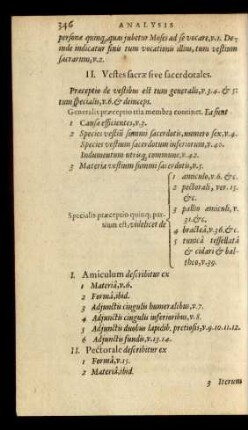 346 ANALYSIS
personæ quinq, quas jubetur Moses ad se vocare, v.1. De-
inde indicatur finis tum vocationis illius, tum vestium
sacrarum, v.2.
II. Vestes sacræ sive sacerdotales.
Præceptio de vestibus est tum generalis, v.3.4. & 5.
tum specialis, v.6. & deinceps.
Generalis præceptio tria membra continet. Ea sunt
1 Causæ efficientes, v.3.
2 Species vestiũ summi sacerdotis, numero sex. v.4.
Species vestium sacerdotum inferiorum, v.40.
Indumentum utriusq, commune, v.42.
3 Materia vestium summi sacerdotis, v.5.
Specialis præceptio quinq; par-
tium est, videlicet de
1 amiculo, v.6. &c.
2 pectorali, ver. 15.
&c.
3 pallio amiculi, v.
31. &c.
4 bracteâ, v.36. &c.
5 tunicâ tessellatâ
& cidari & bal-
theo, v.39.
I. Amiculum describitur ex
1 Materiâ, v.6.
2 Formâ, ibid.
3 Adjunctis cingulis humeralibus, v.7.
4 Adjunctis cingulis inferioribus, v.8.
5 Adjunctis duobus lapidib. pretiosis, v.9.10.11.12.
6 Adjunctis fundis, v.13.14.
II. Pectorale describitur ex
1 Formâ, v.15.
2 Materiâ, ibid.
3 Iterum